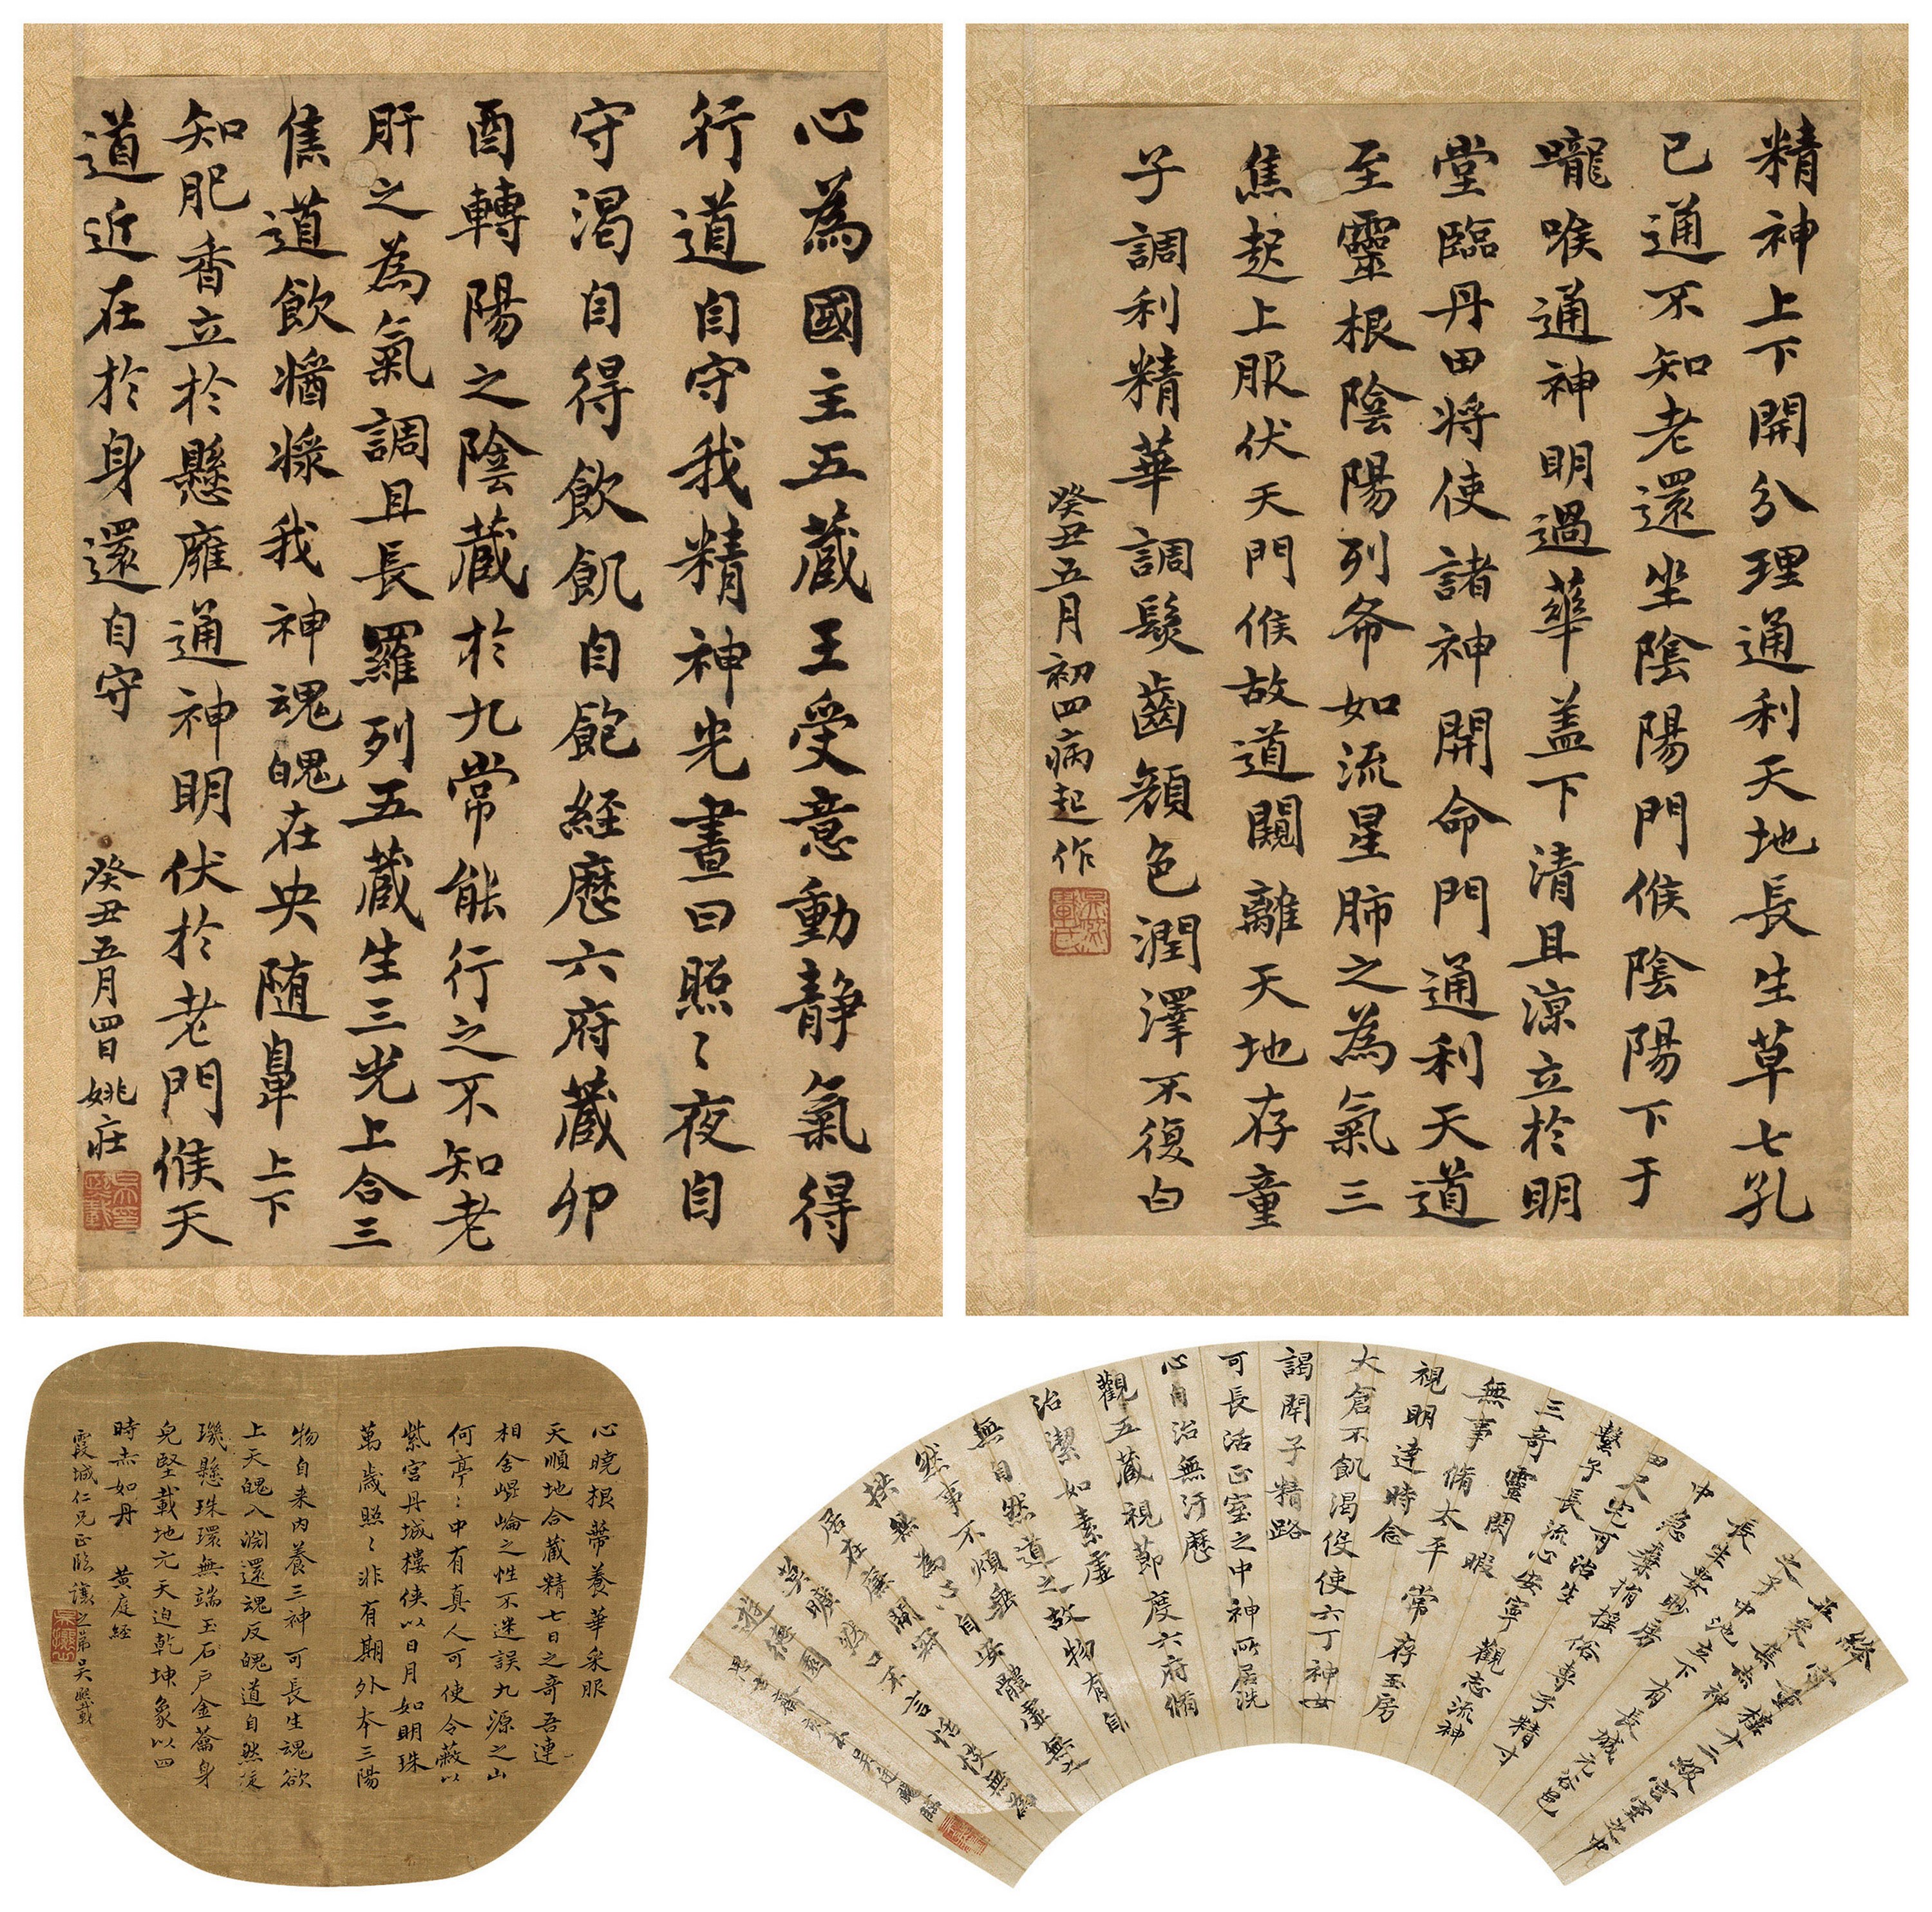 心為國主五藏王受意動靜氣得
行道自守我精神光晝日照〻夜自
守渴自得飲飢自飽經歷六府藏卯
酉轉陽之陰藏於九常能行之不知老
肝之為氣調且長羅列五藏生三光上合三
焦道飲醬漿我神魂魄在央随鼻上下
知肥香立於懸雍通神明伏於老門候天
道近在於身還自守
癸丑五月四日姚莊
精神上下開分理通利天地長生草七孔
已通不知老還坐陰陽門候陰陽下于
嚨喉通神明過華盖下清且涼立於明
堂臨丹田將使諸神開命門通利天道
至靈根陰陽列布如流星肺之為氣三
焦起上服伏天門候故道闚離天地存童
子調利精華調髮齒顏色潤澤不復白
癸丑五月初四病起作
心曉根蔕養華采服
天順地合藏精七日之奇吾連
相舍崐崘之性不迷誤九源之山
何亭〻中有真人可使令蔽以
紫宮丹城樓俠以日月如明珠
萬歲照〻非有期外本三陽
物自来內養三神可長生魂欲
上天魄入淵還魂反魄道自然旋
璣懸珠環無端玉石戶金籥身
兒堅載地元天迫乾坤象以四
時赤如丹 黃庭經
霞城仁兄正臨 讓之弟吳熙載
絳宮重樓十二級宮室之中
五采集赤神
之子中池立下有長城元谷邑
長生要眇房
中急棄捐搖俗專子精寸
田尺宅可治生
繫子長流心安寧觀志流神
三奇靈閑暇
無事脩太平常存玉房
視明達時念
大倉不飢渴役使六丁神女
謁閉子精路
可長活正室之中神所居洗
心自治無汙歷
觀五藏視節度六府脩
治潔如素虛
無自然道之故物有自
然事不煩垂
拱無為心自安體虛無之
居在廉間寂
莫曠然口不言恬惔無為
遊德園